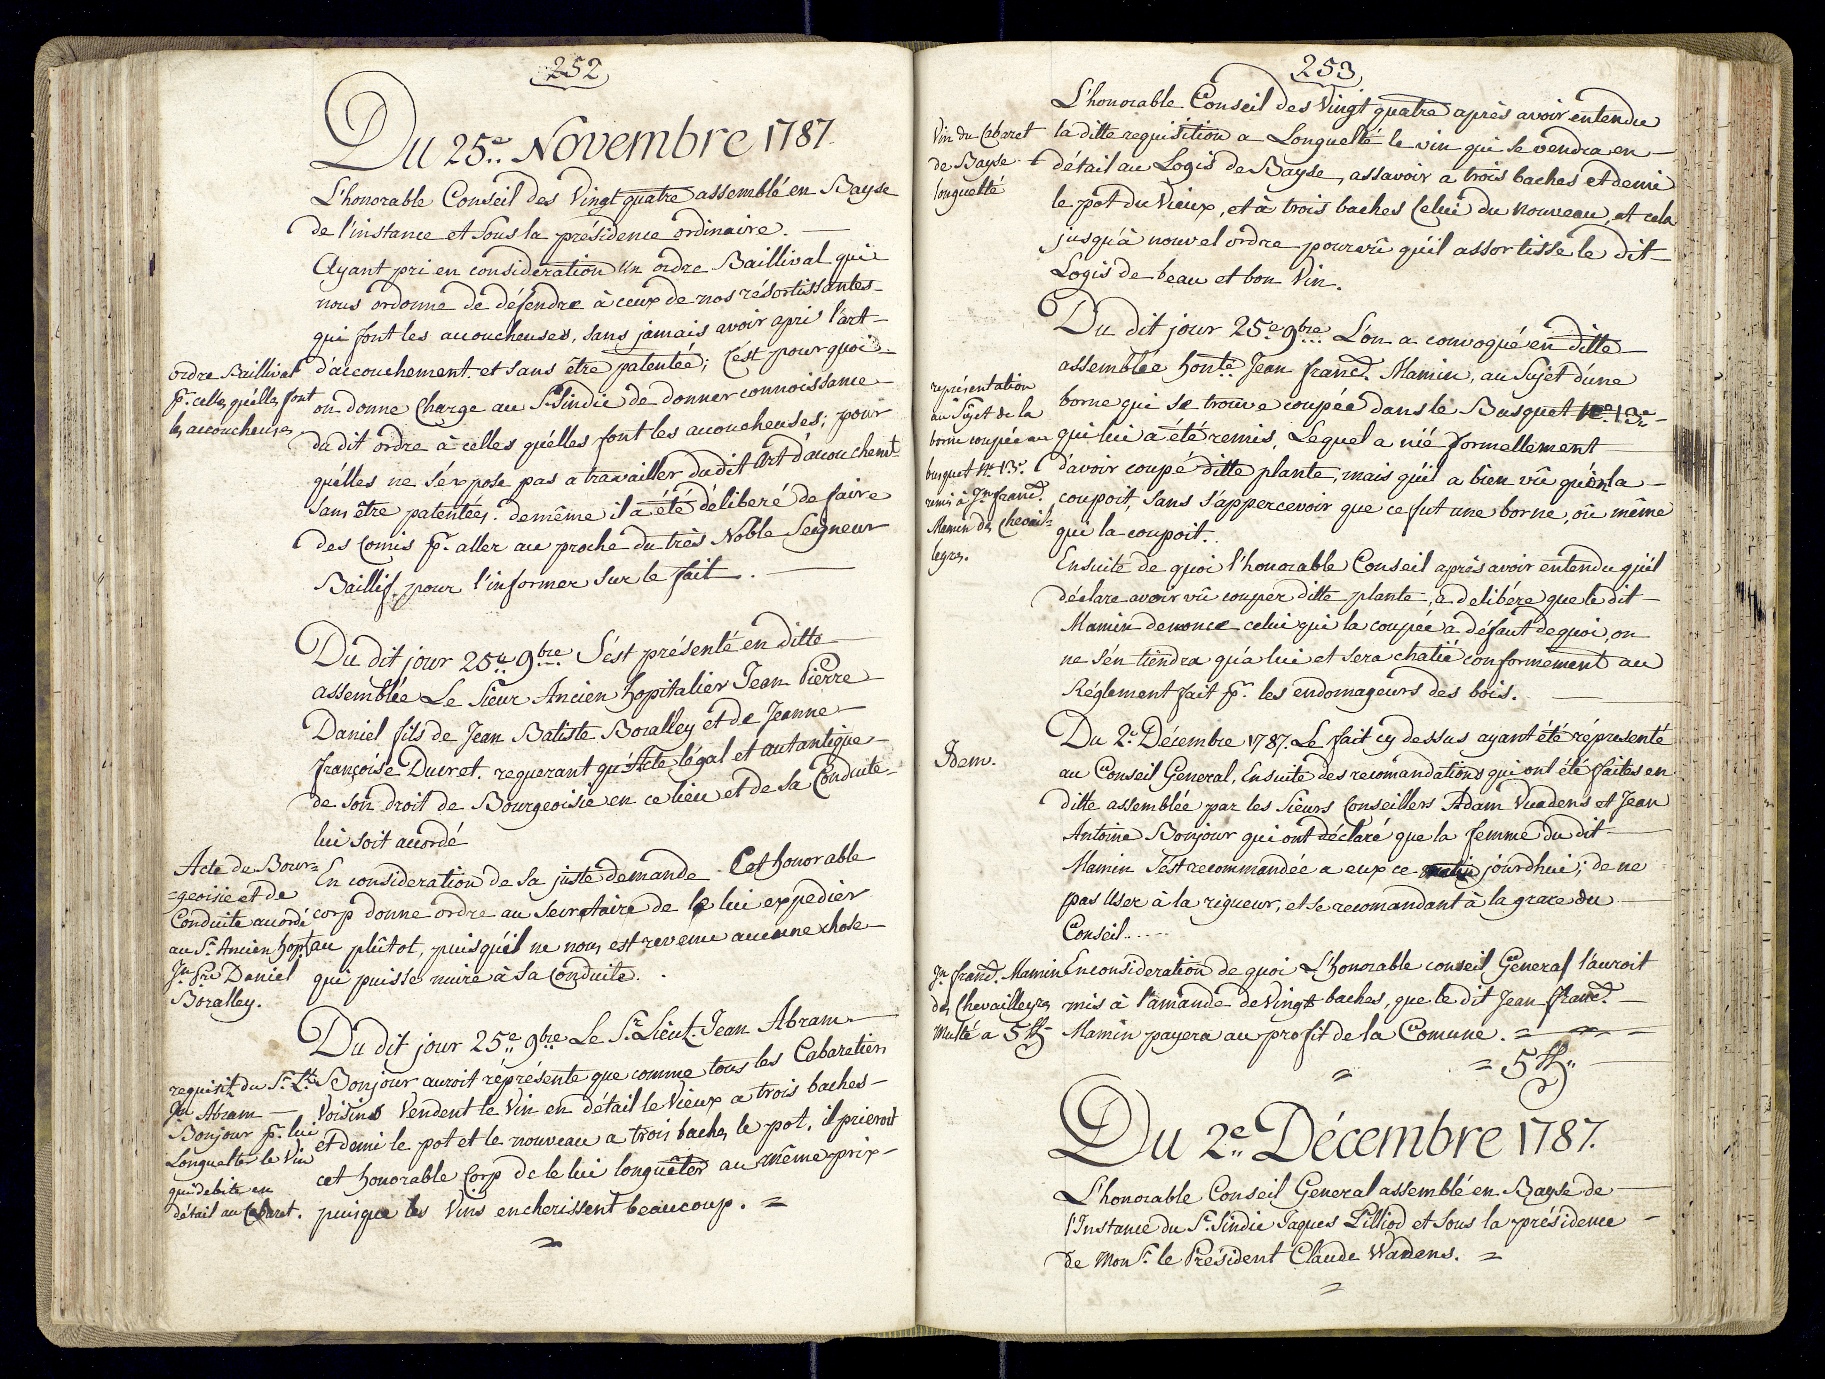 252
Du 25e. Novembre 1787.
L'honorable Conseil des Vingt quatre assemblé en Bayse
de l'instance et sous la présidence ordinaire.
Ayant pri en consideration un ordre Baillival qui
nous ordonne de défendre à ceux de nos résortissantes
qui font les acoucheuses, sans jamais avoir apri l'art
ordre Baillival
pr. celles qu'elles font
les accoucheuses
d'accouchement et sans être patentée; C'est pourquoi
on donne Charge au Sr. Sindic de donner connoissance
du dit ordre à celles qu'elles font les acoucheuses, pour
qu'elles ne s'éxpose pas a travailler du dit art d'acouchemt
sans être patentées. demême il a été déliberé de faire
des Comis pr. aller au proche du très Noble Seigneur
Baillif, pour l'informer sur le fait.
Du dit jour 25e 9bre S'est présenté en ditte
assemblée Le Sieur Ancien hopitalier Jean Pierre
Daniel fils de Jean Batiste Boralley et de Jeanne
françoise Ducret. requerant qu'Acte légal et autantique
de son droit de Bourgeoisie en ce lieu et de sa Conduite
lui soit acordé
Acte de Bour=
=geoisie et de
Conduite acordé
au Sr. Ancien hopt.
Jn. Pre Daniel
Boralley.
En consideration de sa juste demande Cet honorable
corp donne ordre au secretaire de le lui expedier
au plûtot, puisqu'il ne nous est revenu aucune chose
qui puisse nuire à sa Conduite.
Du dit jour 25e 9bre Le Sr. Lieut. Jean Abram
requisit. du Sr. Lt.
Jn Abram
Bonjour pr. lui
Longuelter le Vin
qui debite en
détail au Cabaret.
Bonjour auroit réprésente que comme tous les Cabaretiers
Voisins Vendent le Vin en détail le Vieux a trois baches
et demi le pot et le nouveau a trois baches le pot, il prieroit
cet honorable Corp de le lui longuêlter au même prix
puisque les Vins encherissent beaucoup. =
253
L'honorable Conseil des Vingt quatre après avoir entendu
Vin du Cabaret
de Bayse
longuelté
la ditte requisition a Longuelté le vin qui se vendra en
détail au Logis de Bayse, assavoir a trois baches et demi
le pot du Vieux, et à trois baches Celui du nouveau, et cela
jusqu'à nouvel ordre pourvû qu'il assortisse le dit
Logis de beau et bon Vin.
Du dit jour 25e 9bre L'on a convoqué en ditte
assemblée honte. Jean francd. Mamin, au Sujet d'une
représentation
au Sujet de la
borne coupée au
busquet No. 13e.
remis à Jn francd.
Mamin des Chevail=
leyres.
borne qui se trouve coupée dans le Busquet No. 13e
qui lui a été remis, Lequel a nié formellement
d'avoir coupé ditte plante, mais qu'il a bien vû qu'on la
coupoit, sans s'appercevoir que ce fut une borne, où même
qui la coupoit.
Ensuite de quoi l'honorable Conseil après avoir entendu qu'il
déclare avoir vû couper ditte plante, a delibére que le dit
Mamin denonce celui qui la coupée à défaut de quoi, on
ne s'en tiendra qu'a lui et sera chatié conformement au
Réglement fait pr. les endomageurs des bois.
Idem.
Du 2e. Décembre 1787. Le fait cy dessus ayant été réprésenté
au Conseil General, Ensuite des recomandations qui ont été faites en
ditte assemblée par les Sieurs Conseillers Adam Vuadens et Jean
Antoine Bonjour qui ont déclaré que la femme du dit
Mamin s'est recommandée a eux ce jourdhui; de ne
pas User à la rigueur, et se recomandant à la grace du
Conseil.....
Jn. francd. Mamin
des Chevailleyres
multé a 5 ff
En consideration de quoi L'honorable conseil General l'auroit
mis à l'amande de Vingt baches, que le dit Jean francd.
Mamin payera au profit de la Comune. =
= 5 ff.
Du 2e. Décembre 1787.
L'honorable Conseil General assemblé en Bayse de
l'Instance du Sr. Sindic Jaques Pilliod et sous la présidence
de Monsr. le Président Claude Wadens. =